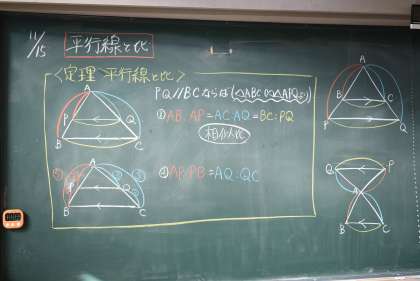 11/15
平行線と比
<定理 平行線と比>
PQ//BCならば(△ABC∽△APQより)
① AB:AP=AC:AQ=BC:PQ
相似比
② AP:PB=AQ:QC
A
P
Q
B
C
A
P
Q
B
C
A
B
C
P
Q
Q
P
A
B
C